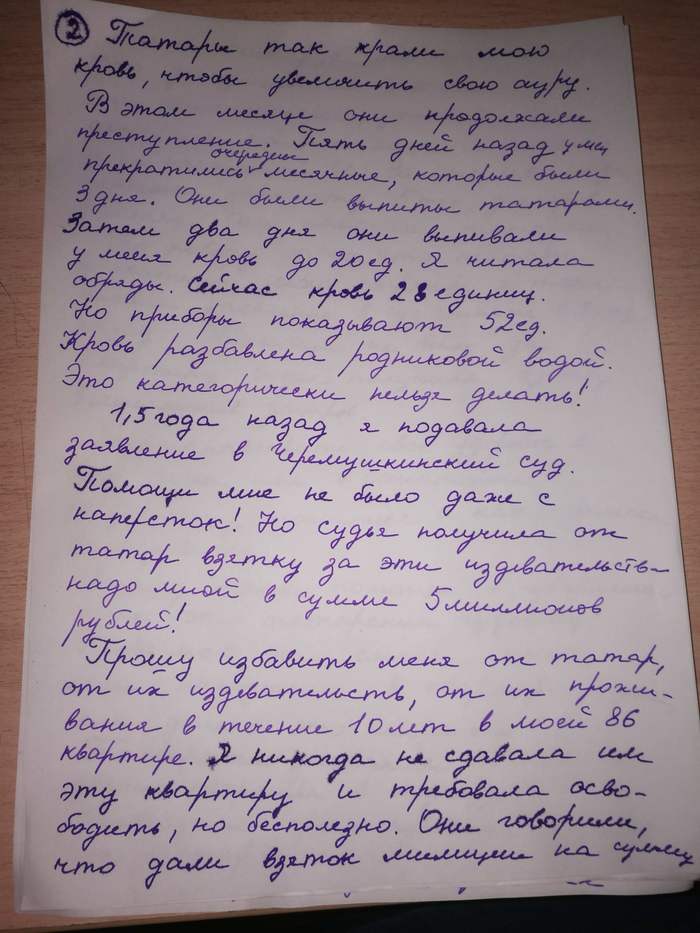 2 Татары так крали мою
кровь, чтобы увеличить свою ауру.
В этом месяце они продолжали
преступление. Пять дней назад у мен
прекратились очередные месячные, которые были
3 дня. Они были выпиты татарами.
Затем два дня они выпивали
у меня кровь до 20 ед. Я читала
обряды. Сейчас кровь 23 единиц.
Но приборы показывают 52 ед.
Кровь разбавлена родниковой водой.
Это категорически нельзя делать!
1,5 года назад я подавала
заявление в Черемушкинский суд.
Помощи мне не было даже с
наперсток! Но судья получила от
татар взятку за эти издевательств-
надо мной в сумме 5 миллионов
рублей!
Прошу избавить меня от татар,
от их издевательств, от их прожи-
вания в течение 10 лет в моей 86
квартире. Я никогда не сдавала им
эту квартиру и требовала осво-
бодить, но бесполезно. Они говорили,
что дали взяток милиции на сумму